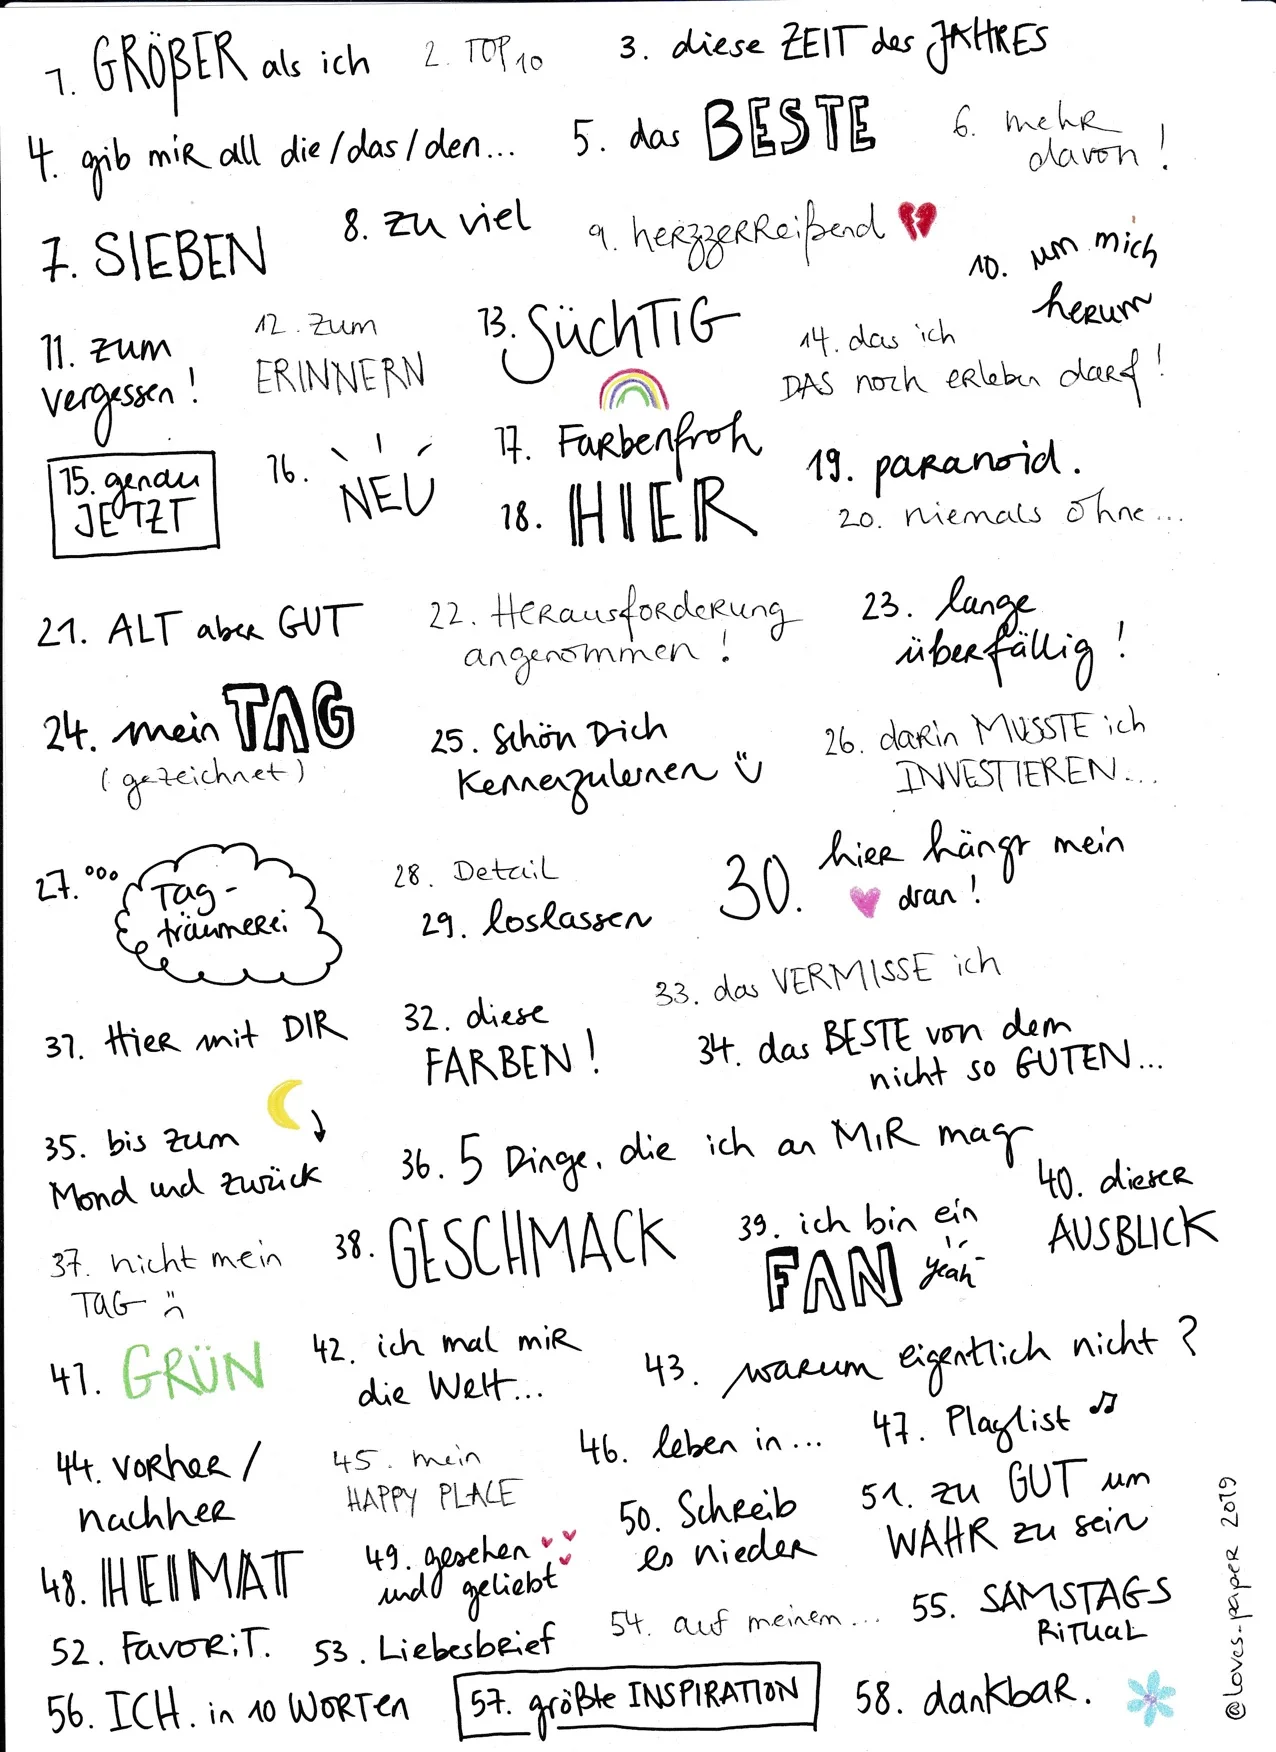 1. GRÖßER als ich
2. TOP 10
3. diese ZEIT des JAHRES
4. gib mir all die/das/den...
5. das BESTE
6. mehr
davon!
7. SIEBEN
8. zu viel
9. herzzerreißend
10. um mich
herum
11. zum
vergessen!
12. zum
ERINNERN
13. SüchTIG
14. das ich
DAS noch erleben darf!
15. genau
JETZT
16. NEU
17. Farbenfroh
18. HIER
19. paranoid.
20. niemals ohne...
21. ALT aber GUT
22. Herausforderung
angenommen!
23. lange
überfällig!
24. mein TAG
(gezeichnet)
25. Schön Dich
Kennenzulernen
26. darin MUSSTE ich
INVESTIEREN...
27. Tag-
träumerei
28. Detail
29. loslassen
30. hier hängt mein
dran!
31. Hier mit DIR
32. diese
FARBEN!
33. das VERMISSE ich
34. das BESTE von dem
nicht so GUTEN...
35. bis zum
Mond und zurück
36. 5 Dinge, die ich an MIR mag
37. nicht mein
TAG :(
38. GESCHMACK
39. ich bin ein
FAN yeah
40. dieser
AUSBLICK
41. GRÜN
42. ich mal mir
die Welt...
43. warum eigentlich nicht?
44. vorher/
nachher
45. mein
HAPPY PLACE
46. leben in...
47. Playlist ♫
48. HEIMAT
49. gesehen
und geliebt
50. Schreib
es nieder
51. zu GUT um
WAHR zu sein
52. Favorit.
53. Liebesbrief
54. auf meinem...
55. SAMSTAGS
RITUAL
56. ICH. in 10 WORTEN
57. größte INSPIRATION
58. dankbar.
@loves_paper 2019